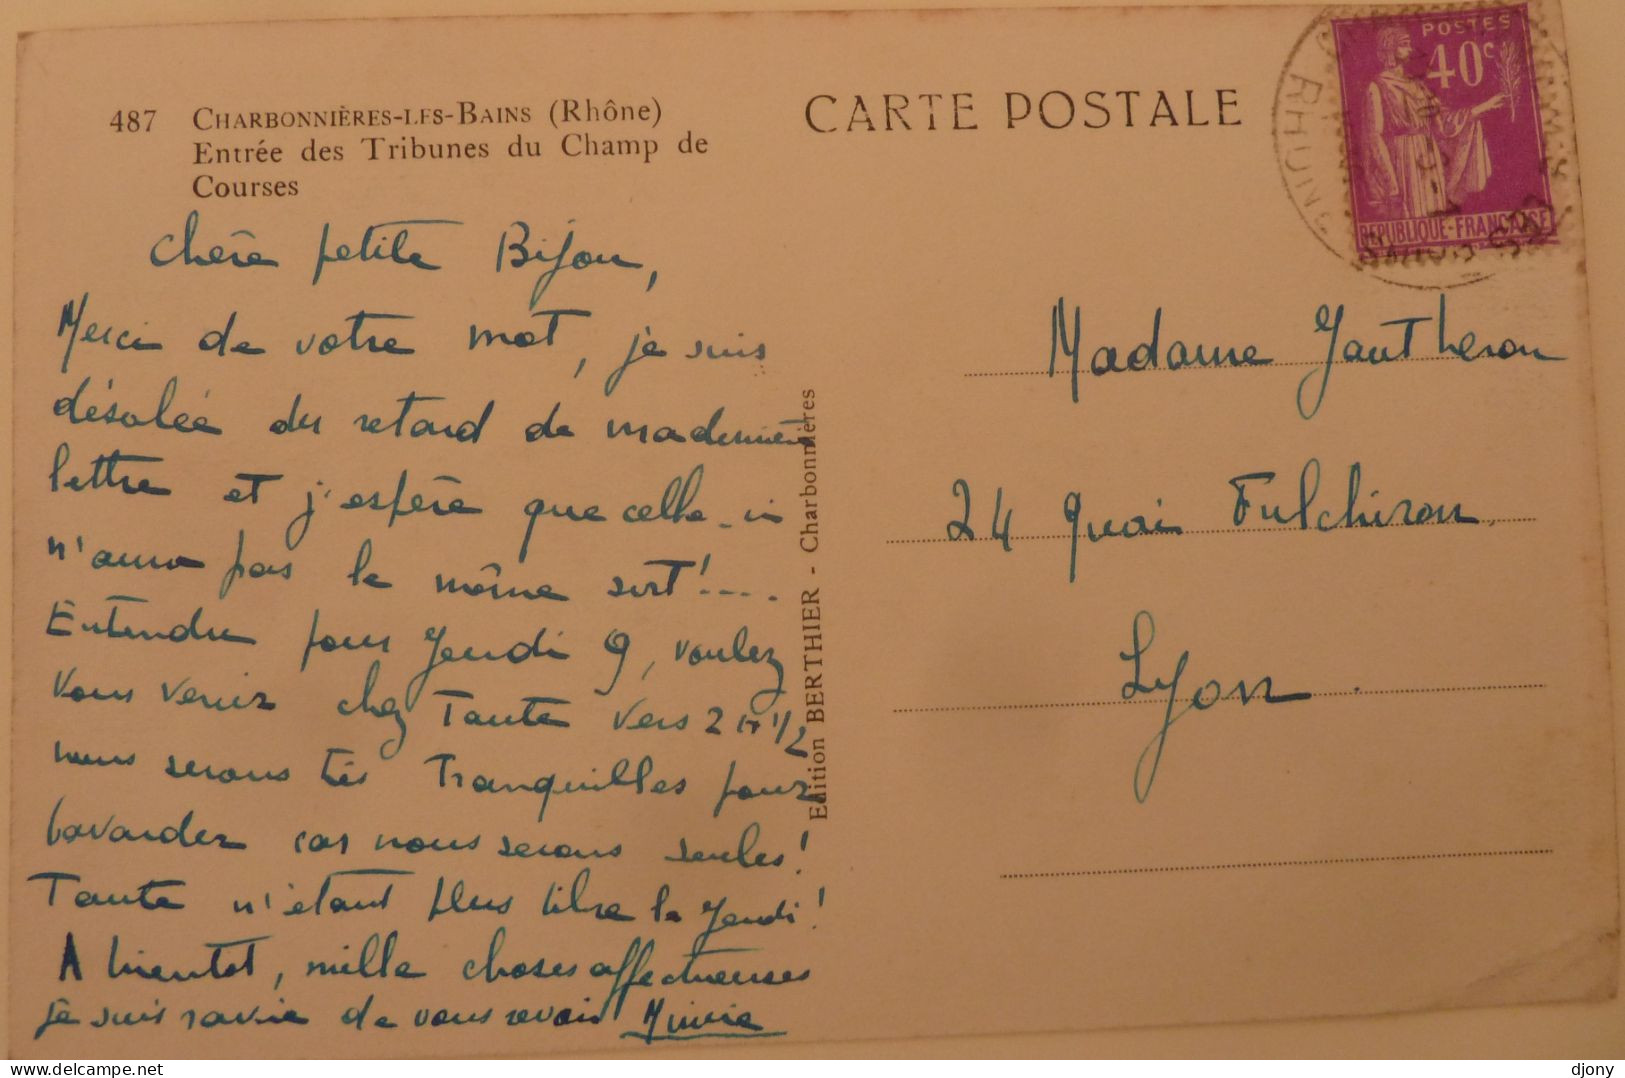 487 CHARBONNIÈRES-LES-BAINS (Rhône)
Entrée des Tribunes du Champ de
Courses
CARTE POSTALE
POSTES
40c
REPUBLIQUE-FRANÇAISE
RHONE
Chère petite Bijou,
Merci de votre mot, je suis
désolée du retard de ma dernière
lettre et j'espère que celle-ci
n'aura pas le même sort!....
Entendu pour Jeudi 9, voulez
vous venir chez Tante vers 2 H 1/2
nous serons très tranquilles pour
bavarder car nous serons seules!
Tante n'étant plus libre le Jeudi!
A bientôt, mille choses affectueuses
je suis ravie de vous revoir
Edition BERTHIER - Charbonnières
Madame Jautheron
24 Quai Fulchiron
Lyon.
djony